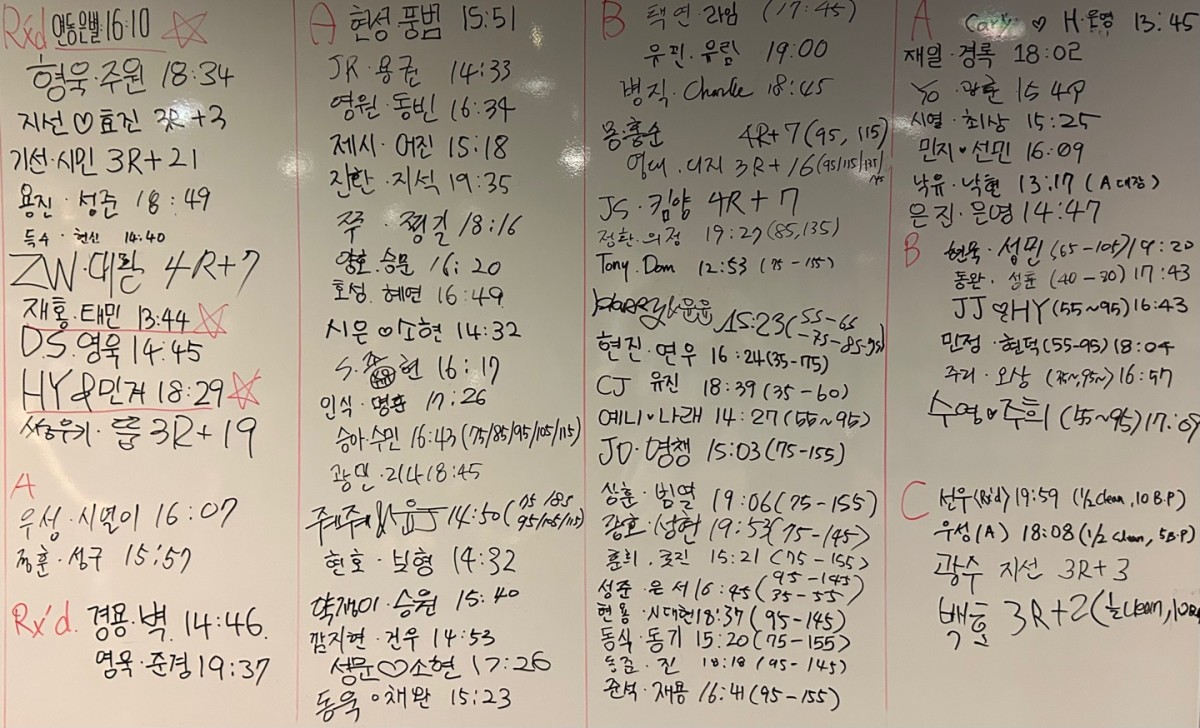 Rx'd 연동은별 16:10
형욱·주원 18:34
지선♡효진 3R+3
기선·시민 3R+21
용진·성준 18:49
득수·현신 14:40
ZW·대환 4R+7
재홍·태민 13:44
DS·영욱 14:45
HY&민저 18:29
3R+19
A
우성·시열이 16:07
정훈·성구 15:57
Rx'd.
경용·벽 14:46.
영욱·준경 19:37
A 현성 풍범 15:51
JR·용권 14:33
영원·동빈 16:34
제시·어진 15:18
진환·지석 19:35
쭈·쩡길 18:16
양호·승문 16:20
호성·혜연 16:49
시은♡소현 14:32
현 16:17
인식·명훈 17:26
승아·수민 16:43(75/85/95/105/115)
광민·리나 18:45
14:50(75/85/95/105/115)
현호·보형 14:32
승원 15:40
깜지현·건우 14:53
성문♡소현 17:26
동욱·이채완 15:23
B 택연·라임 (17:45)
유핀·유림 19:00
병직·Charlie 18:45
몽·홍순 4R+7(95, 115)
영대·디지 3R+16(95/115/135/145
JS·킴양 4R+7
정환·의정 19:27(85,135)
Tony·Dom 12:53(75-155)
Harry&윤윤 15:23(55-65-75-85-95)
현진·연우 16:24(35-75)
CJ 유진 18:39(35-60)
예니♥나래 14:27(55~95)
JD·명챙 15:03(75-155)
상훈·범열 19:06(75-155)
강호·상현 19:53(75-145)
훈희·웃진 15:21(75-155)
성준·은서 16:45(95-145 35-55)
현용·시대현 18:37(95-145)
동식·동기 15:20(75-155)
동준·진 18:18(95-145)
준석·재용 16:41(95-155)
A Carly♡H·은영 13:45
재일·경록 18:02
Yo·광훈 15:49
시열·최상 15:25
민지♥선민 16:09
낙유·낙현 13:17(A대장)
은진·은영 14:47
B 현욱·성민(65-105)19:20
동완·성훈(40-80)17:43
JJ♡HY(55~95)16:43
민정·현덕(55-95)18:04
주리·오상(75~95)16:57
수영♥주희(55~95)17:09
C 선우(Rx'd)19:59 (1/2 clean, 10 B.P)
우성(A) 18:08(1/2 clean, 5B.P)
광수 지선 3R+3
백호 3R+2(1/2 clean, 10BP